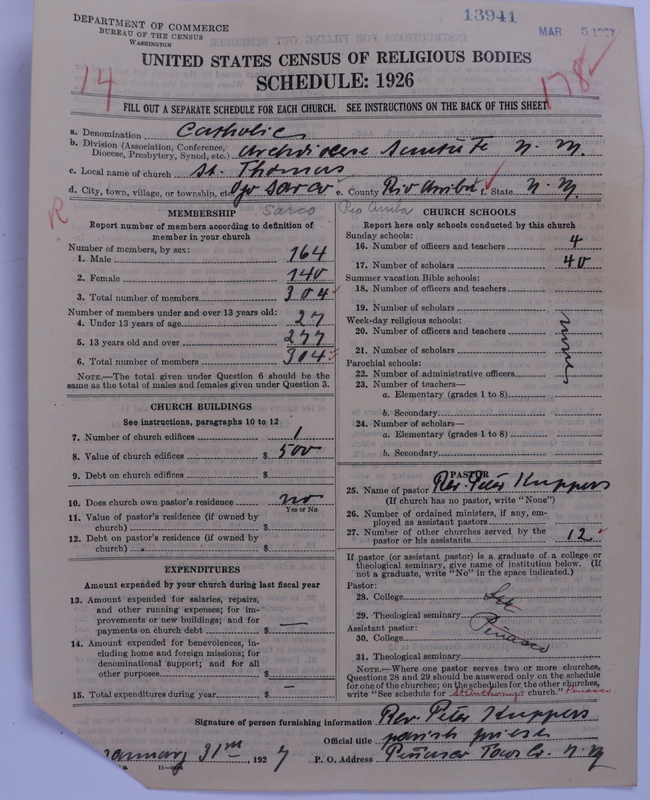 DEPARTMENT OF COMMERCE
BUREAU OF THE CENSUS
WASHINGTON
13941
MAR 5 1927
UNITED STATES CENSUS OF RELIGIOUS BODIES
SCHEDULE: 1926
14
178
FILL OUT A SEPARATE SCHEDULE FOR EACH CHURCH. SEE INSTRUCTIONS ON THE BACK OF THIS SHEET
a. Denomination Catholic
b. Division (Association, Conference, Diocese, Presbytery, Synod, etc.) Archdiocese Santa Fe N. M.
c. Local name of church St. Thomas
d. City, town, village, or township, etc. Ojo Sarco e. County Rio Arriba f. State N. M.
R
Sarco Rio Arriba
MEMBERSHIP
Report number of members according to definition of
member in your church
Number of members, by sex:
1. Male 164
2. Female 140
3. Total number of members 304
Number of members under and over 13 years old:
4. Under 13 years of age 27
5. 13 years old and over 277
6. Total number of members 304
NOTE.—The total given under Question 6 should be
same as the total of males and females given under Question 3.
CHURCH BUILDINGS
See instructions, paragraphs 10 to 12
7. Number of church edifices 1
8. Value of church edifices $ 500
9. Debt on church edifices $
10. Does church own pastor's residence no
Yes or No
11. Value of pastor's residence (if owned by
church) $
12. Debt on pastor's residence (if owned by
church) $
EXPENDITURES
Amount expended by your church during last fiscal year
13. Amount expended for salaries, repairs,
and other running expenses; for im-
provements or new buildings; and for
payments on church debt $ —
14. Amount expended for benevolences, in-
cluding home and foreign missions; for
denominational support; and for all
other purposes $
15. Total expenditures during year $ —
CHURCH SCHOOLS
Report here only schools conducted by this church
Sunday schools:
16. Number of officers and teachers 4
17. Number of scholars 40
Summer vacation Bible schools:
18. Number of officers and teachers
19. Number of scholars
Week-day religious schools:
20. Number of officers and teachers
21. Number of scholars
Parochial schools:
22. Number of administrative officers
23. Number of teachers—
a. Elementary (grades 1 to 8)
b. Secondary
24. Number of scholars—
a. Elementary (grades 1 to 8)
b. Secondary
PASTOR
25. Name of pastor Rev. Peter Kuppers
(If church has no pastor, write "None")
26. Number of ordained ministers, if any, em-
ployed as assistant pastors
27. Number of other churches served by the
pastor or his assistants 12
If pastor (or assistant pastor) is a graduate of a college or
theological seminary, give name of institution below. (If
not a graduate, write "No" in the space indicated.)
Pastor:
28. College
29. Theological seminary Peñasco
Assistant pastor:
30. College
31. Theological seminary
NOTE.—Where one pastor serves two or more churches,
Questions 28 and 29 should be answered only on the schedule
for one of the churches; on the schedules for the other churches,
write "See schedule for St Anthony's church." Penasco.
Signature of person furnishing information Rev. Peter Kuppers
Official title parish priest
January 31 1927 P. O. Address Peñasco Taos Co. N. M